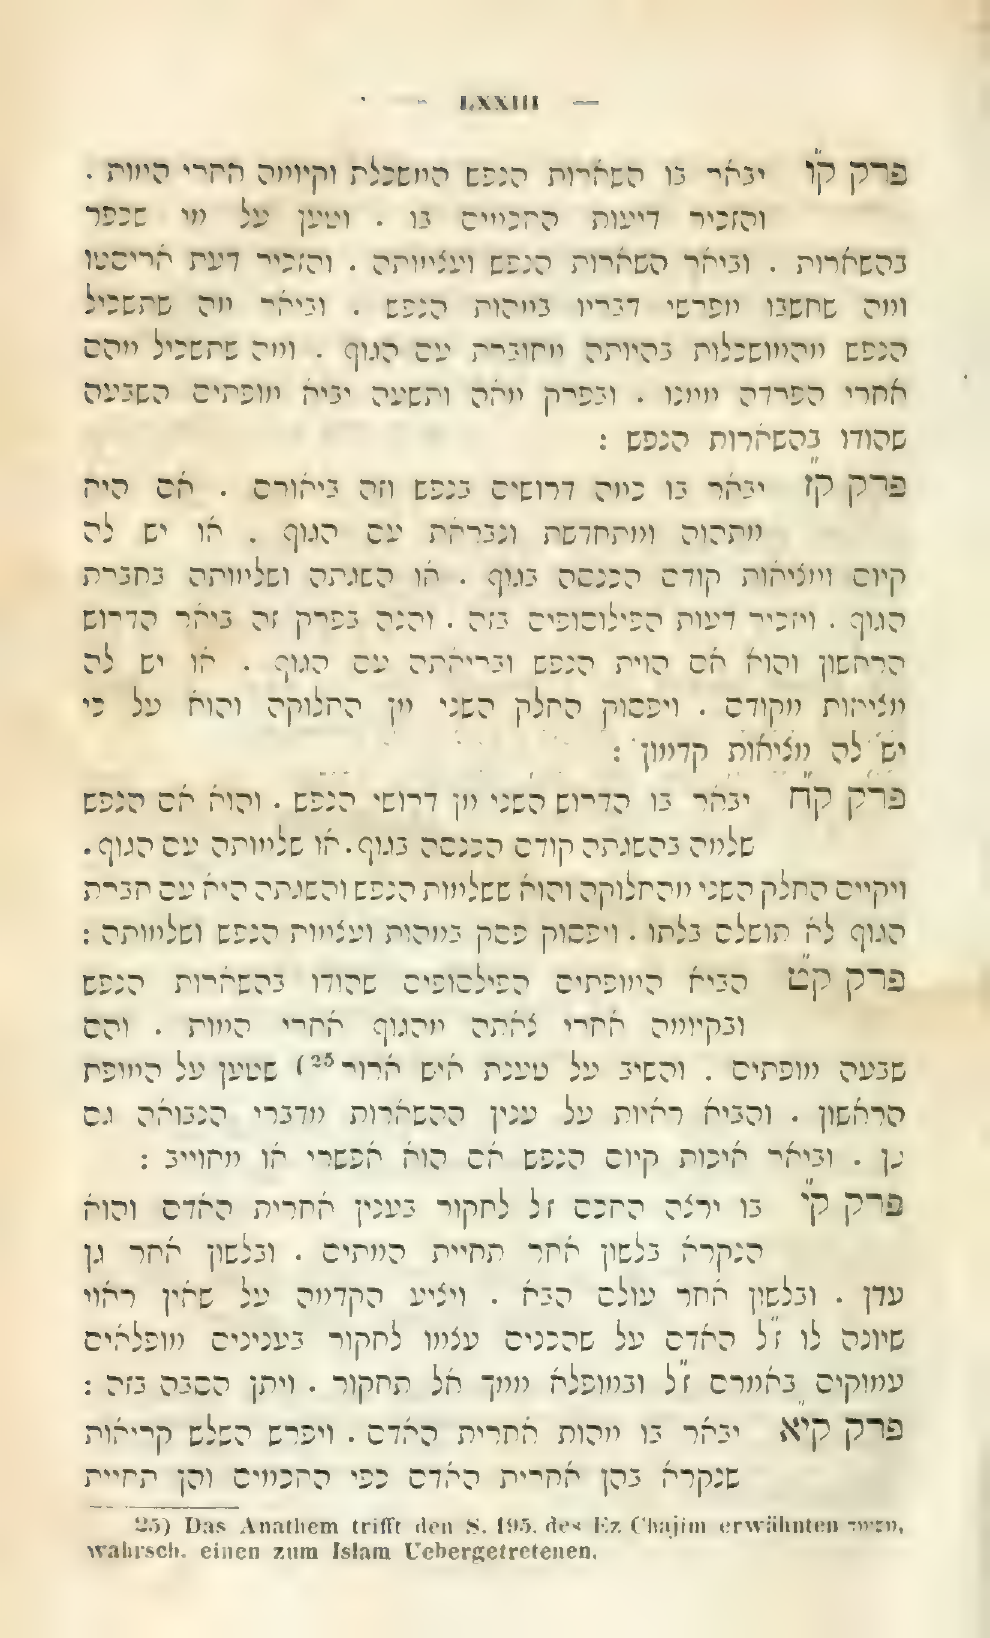 — LXXIII —
פרק ק״ו יבאר בו השארות הנפש המשכלת וקיומה אחרי המות .
והזכיר דיעות החכמים בו . וטען על מי שכפר
בהשארות . וביאר השארות הנפש ועצמותה . והזכיר דעת אריסטו
ומה שחשבו מפרשי דבריו במהות הנפש . וביאר מה שתשכיל
הנפש מהמושכלות בהיותה מחוברת עם הגוף . ומה שתשכיל מהם
אחרי הפרדה ממנו . ובפרק מאה ותשעה יביא מופתים השבעה
שהודו בהשארות הנפש :
פרק ק״ז יבאר בו כמה דרושים בנפש וזה ביאורם . אם היה
מתהוה ומתחדשת ונבראת עם הגוף . או יש לה
קיום ומציאות קודם הכנסה בגוף . או השגתה ושלימותה בחברת
הגוף . ויזכיר דעות הפילוסופים בזה . והנה בפרק זה ביאר הדרוש
הראשון והוא אם הוית הנפש ובריאתה עם הגוף . או יש לה
מציאות מקודם . ויפסוק החלק השני מן החלוקה והוא על כי
יש לה מציאות קדמון :
פרק ק״ח יבאר בו הדרוש השני מן דרושי הנפש . והוא אם הנפש
שלמה בהשגתה קודם הכנסה בגוף . או שלמותה עם הגוף .
ויקיים החלק השני מהחלוקה והוא ששלמות הנפש והשגתה היא עם חברת
הגוף לא תושלם בלתו . ויפסוק פסק במהות ועצמות הנפש ושלמותה :
פרק ק״ט הביא המופתים הפילסופים שהודו בהשארות הנפש
ובקיומה אחרי צאתה מהגוף אחרי המות . והם
שבעה מופתים . והשיב על טענת איש ארור ²⁵) שטען על המופת
הראשון . והביא ראיות על ענין ההשארות מדברי הנבואה גם
כן . וביאר איכות קיום הנפש אם הוא אפשרי או מחוייב :
פרק ק״י בו ירצה החכם זל לחקור בענין אחרית האדם והוא
הנקרא בלשון אחר תחיית המתים . ובלשון אחר גן
עדן . ובלשון אחר עולם הבא . ויציע הקדמה על שאין ראוי
שיונה לו ז״ל האדם על שהכנים עצמו לחקור בענינים מופלאים
עמוקים באמרם ז״ל ובמופלא ממך אל תחקור . ויתן הסבה בזה :
פרק קי״א יבאר בו מהות אחרית האדם . ויפרש השלש קריאות
שנקרא בהן אחרית האדם כפי החכמים והן תחיית
25) Das Anathem trifft den S. 195. des Ez Chajim erwähnten
wahrsch. einen zum Islam Uebergetretenen.